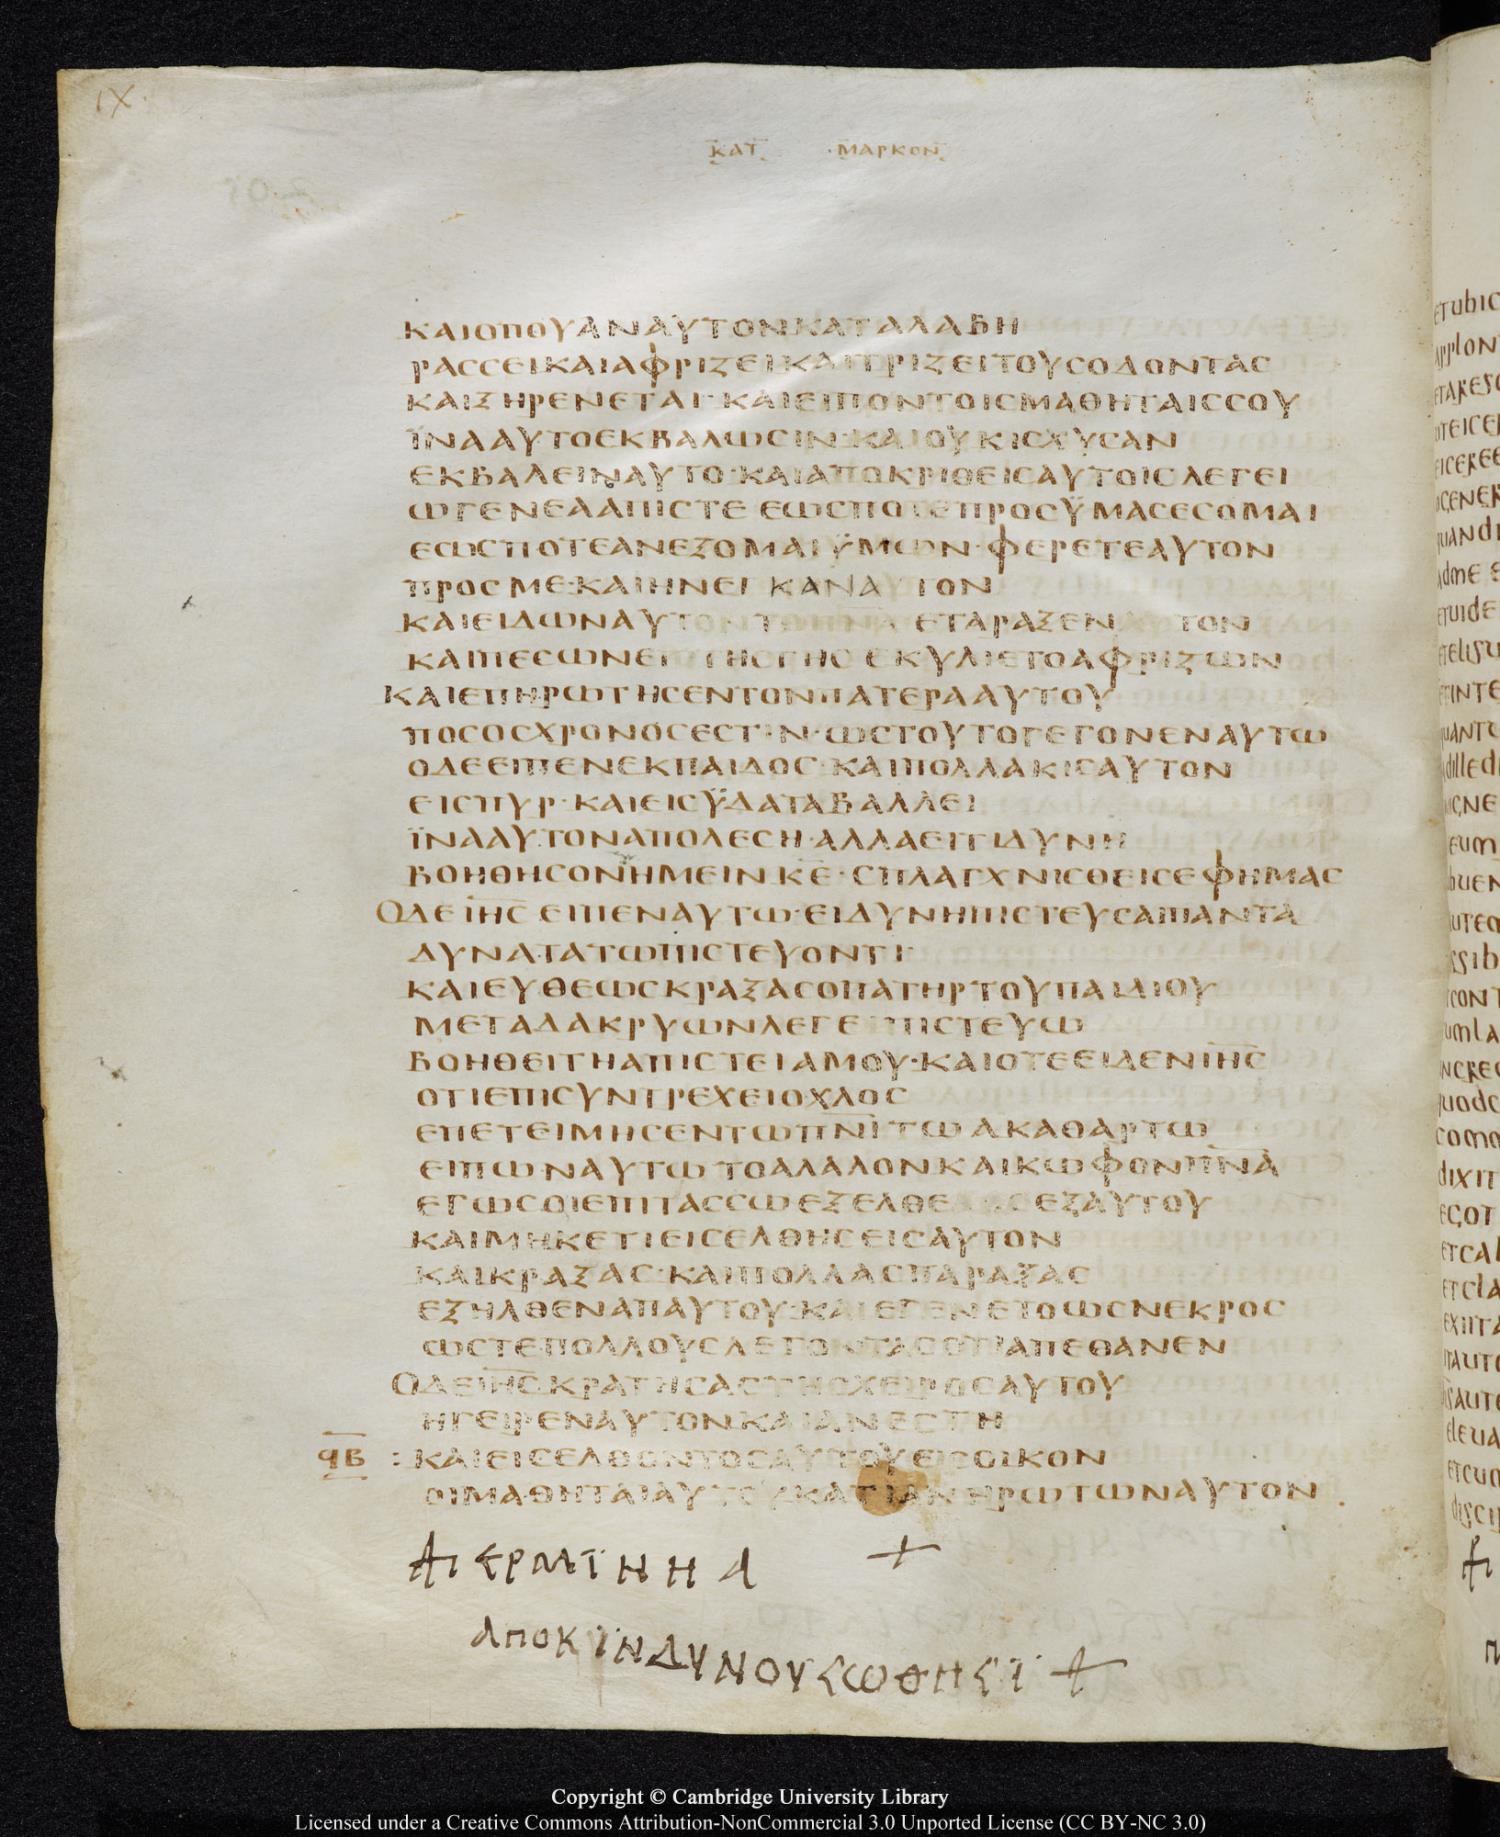 IX
ΚΑΤ ΜΑΡΚΟΝ
ΚΑΙΟΠΟΥΑΝΑΥΤΟΝΚΑΤΑΛΑΒΗ
ΡΑССΕΙΚΑΙΑΦΡΙΖΕΙΚΑΙΤΡΙΖΕΙΤΟΥСΟΔΟΝΤΑС
ΚΑΙΞΗΡΕΝΕΤΑΙ·ΚΑΙΕΙΠΟΝΤΟΙСΜΑΘΗΤΑΙССΟΥ
ΪΝΑΑΥΤΟΕΚΒΑΛΩСΙΝ·ΚΑΙΟΥΚΙСΧΥСΑΝ
ΕΚΒΑΛΕΙΝΑΥΤΟ·ΚΑΙΑΠΟΚΡΙΘΕΙСΑΥΤΟΙСΛΕΓΕΙ
ΩΓΕΝΕΑΑΠΙСΤΕ ΕΩСΠΟΤΕΠΡΟСΫΜΑСΕСΟΜΑΙ
ΕΩСΠΟΤΕΑΝΕΞΟΜΑΙΫΜΩΝ·ΦΕΡΕΤΕΑΥΤΟΝ
ΠΡΟСΜΕ·ΚΑΙΗΝΕΓΚΑΝΑΥΤΟΝ
ΚΑΙΕΙΔΩΝΑΥΤΟΝΤΟΠΝΑ ΕΤΑΡΑΞΕΝΑΥΤΟΝ
ΚΑΙΠΕСΩΝΕΠΙΤΗСΓΗС ΕΚΥΛΙΕΤΟΑΦΡΙΖΩΝ
ΚΑΙΕΠΗΡΩΤΗСΕΝΤΟΝΠΑΤΕΡΑΑΥΤΟΥ
ΠΟСΟСΧΡΟΝΟСΕСΤΙΝ·ΩСΤΟΥΤΟΓΕΓΟΝΕΝΑΥΤΩ
ΟΔΕΕΙΠΕΝΕΚΠΑΙΔΟС·ΚΑΙΠΟΛΛΑΚΙСΑΥΤΟΝ
ΕΙСΠΥΡ·ΚΑΙΕΙСΫΔΑΤΑΒΑΛΛΕΙ
ΪΝΑΑΥΤΟΝΑΠΟΛΕСΗ·ΑΛΛΑΕΙΤΙΔΥΝΗ
ΒΟΗΘΗСΟΝΗΜΕΙΝΚΕ·СΠΛΑΓΧΝΙСΘΕΙСΕΦΗΜΑС
ΟΔΕΙΗС ΕΙΠΕΝΑΥΤΩ·ΕΙΔΥΝΗΠΙСΤΕΥСΑΙΠΑΝΤΑ
ΔΥΝΑΤΑΤΩΠΙСΤΕΥΟΝΤΙ
ΚΑΙΕΥΘΕΩСΚΡΑΞΑСΟΠΑΤΗΡΤΟΥΠΑΙΔΙΟΥ
ΜΕΤΑΔΑΚΡΥΩΝΛΕΓΕΙ ΠΙСΤΕΥΩ
ΒΟΗΘΕΙΤΗΑΠΙСΤΕΙΑΜΟΥ·ΚΑΙΟΤΕΕΙΔΕΝΙΗС
ΟΤΙΕΠΙСΥΝΤΡΕΧΕΙΟΧΛΟС
ΕΠΕΤΕΙΜΗСΕΝΤΩΠΝΙΤΩΑΚΑΘΑΡΤΩ
ΕΙΠΩΝΑΥΤΩ ΤΟΑΛΑΛΟΝΚΑΙΚΩΦΟΝΠΝΑ
ΕΓΩСΟΙΕΠΙΤΑССΩ ΕΞΕΛΘΕ ΕΞΑΥΤΟΥ
ΚΑΙΜΗΚΕΤΙΕΙСΕΛΘΗСΕΙСΑΥΤΟΝ
ΚΑΙΚΡΑΞΑС·ΚΑΙΠΟΛΛΑСΠΑΡΑΞΑС
ΕΞΗΛΘΕΝΑΠΑΥΤΟΥ·ΚΑΙΕΓΕΝΕΤΟΩСΝΕΚΡΟС
ΩСΤΕΠΟΛΛΟΥСΛΕΓΟΝΤΑСΟΤΙΑΠΕΘΑΝΕΝ
ΟΔΕΙΗС ΚΡΑΤΗСΑСΤΗСΧΕΙΡΟСΑΥΤΟΥ
ΗΓΕΙΡΕΝΑΥΤΟΝΚΑΙΑΝΕСΤΗ
ϥΒ : ΚΑΙΕΙСΕΛΘΟΝΤΟСΑΥΤΟΥΕΙСΟΙΚΟΝ
ΟΙΜΑΘΗΤΑΙΑΥΤΟΥΚΑΤΙΔΙΑΝΗΡΩΤΩΝΑΥΤΟΝ
ΕΡΜΙΝΗΑ +
ΑΠΟΚΪΝΔΥΝΟΥСΩΘΗСΪ +
Copyright © Cambridge University Library
Licensed under a Creative Commons Attribution-NonCommercial 3.0 Unported License (CC BY-NC 3.0)